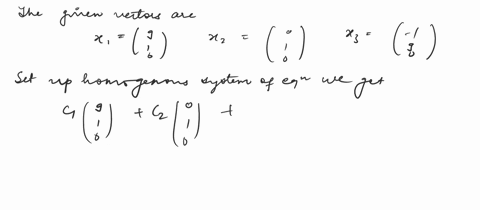 The given vectors are
x₁ = (9 1 0) x₂ = (0 1 0) x₃ = (-1 9 0)
Set up homogenous system of eqⁿ we get
C₁ (9 1 0) + C₂ (0 1 0) +